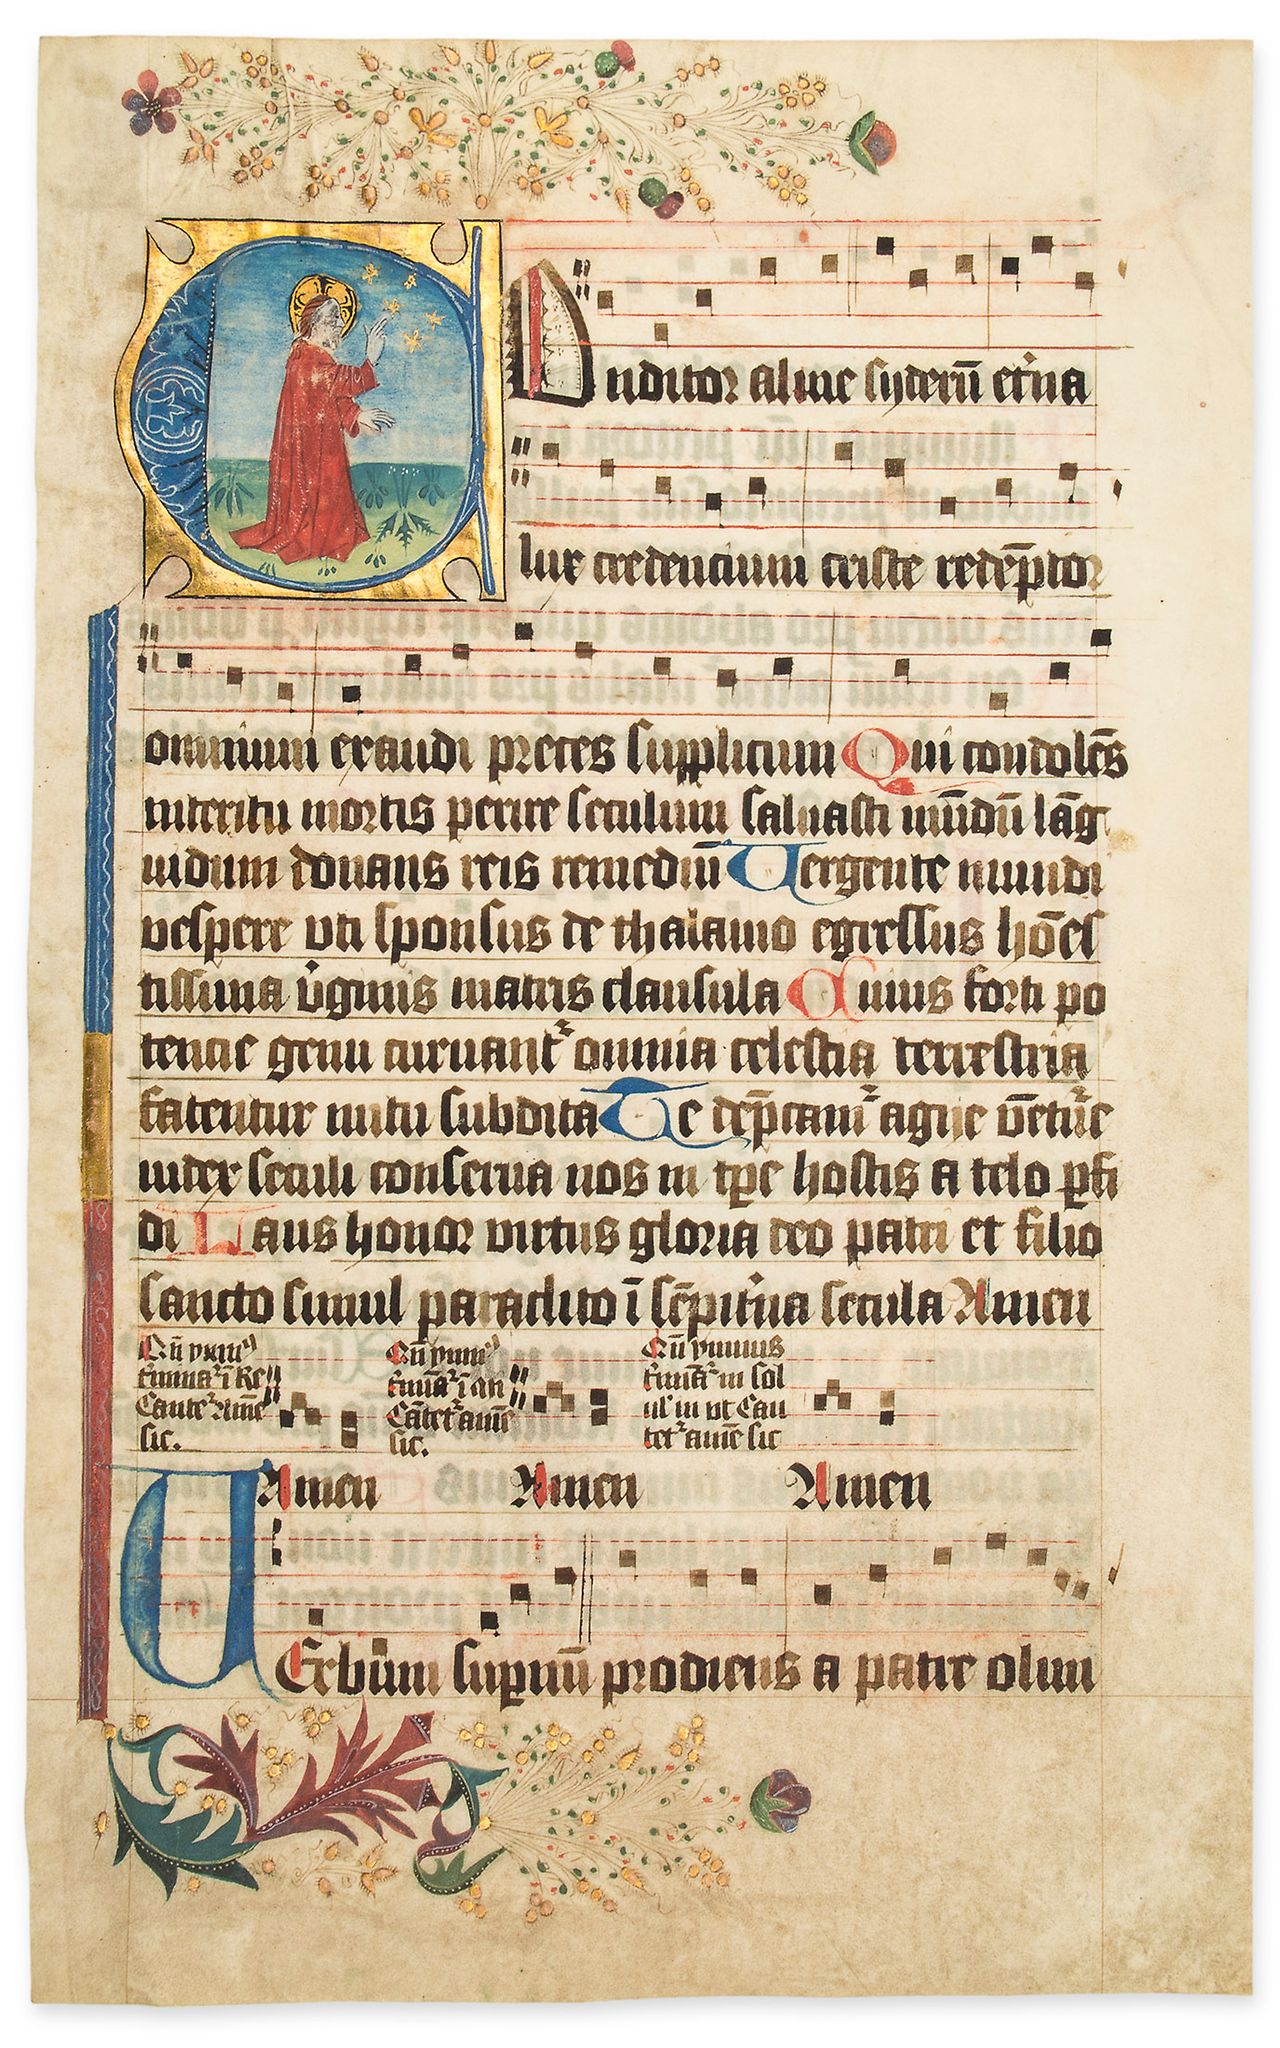 Conditor alme syderū et̾na
lux credencium criste redēptor
omnium exaudi preces supplicum Qui condolēs
interitu mortis perire seculum saluasti mūdū lāg
uidum donans reis remediū Uergente mundi
vespere vti sponsus de thalamo egressus hōes
tissima v̾ginis matris clausula Cuius forti po
tencie genu curuant᷑ omnia celestia terrestria
fatentur nutu subdita Te dep̄cam᷑ agye vēt᷑e
iudex seculi conserua nos in tp̄e hostis a telo ꝑfi
di Laus honor virtus gloria deo patri et filio
sancto simul paraclito ī sēpit̾na secula Amen
Cū ymn⁹ Cū ymn⁹ Cū ymnus
t̾minat᷑ ī Re t̾minat᷑ ī an t̾minat᷑ in sol
Cantet᷑ Amē Cātet᷑ amē ul in vt Can
sic. sic. tet᷑ amē sic
Amen Amen Amen
UErbum suꝑnū prodiens a patre olim